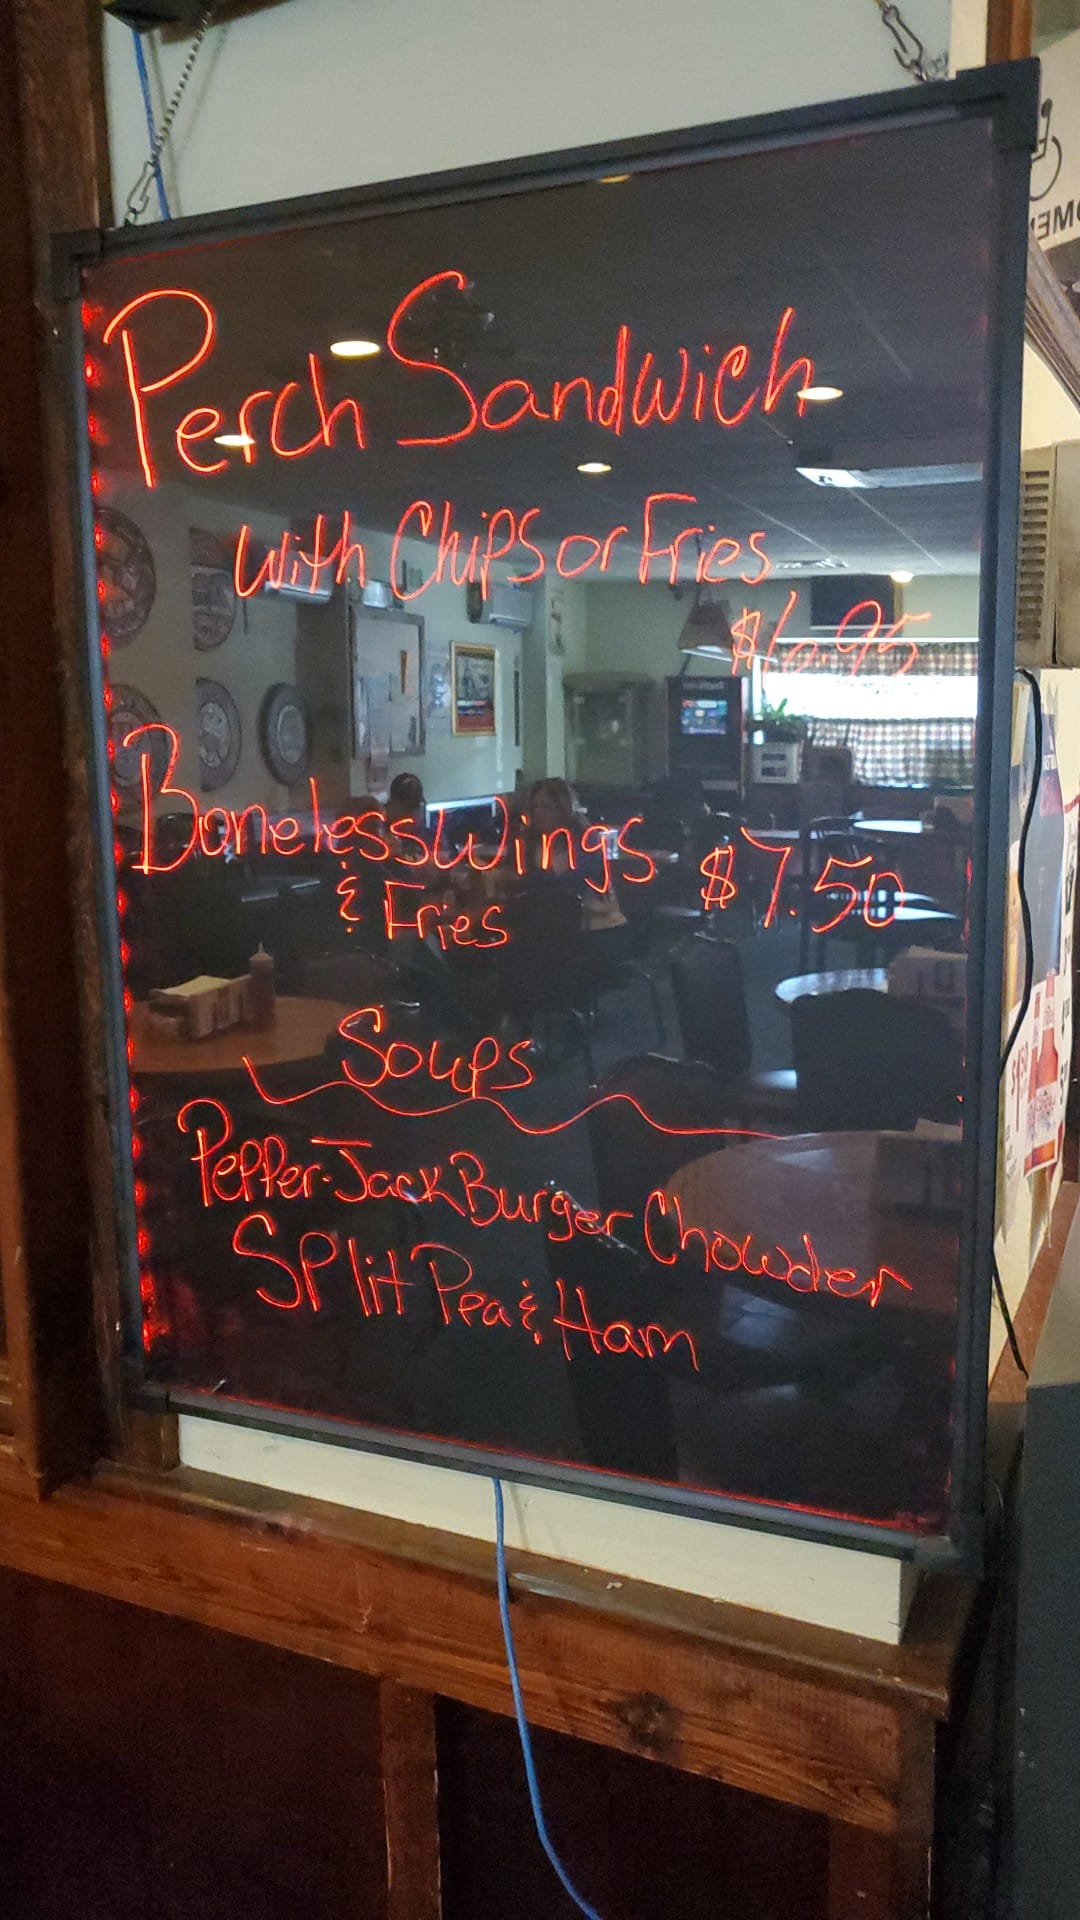 Perch Sandwich
with Chips or Fries
$6.95
Boneless Wings $7.50
& Fries
Soups
Pepper-Jack Burger Chowder
Split Pea & Ham